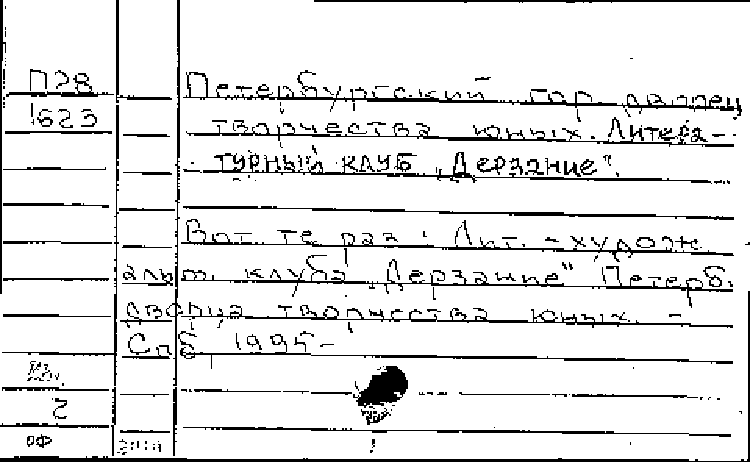 П28
1623
Петербургский гор. дворец
творчества юных. Литера-
турный клуб „Дерзание".
Вот те раз: Лит.-худож.
альм. клуба „Дерзание" Петерб.
дворца творчества юных. -
СпБ, 1995-
2
ОФ